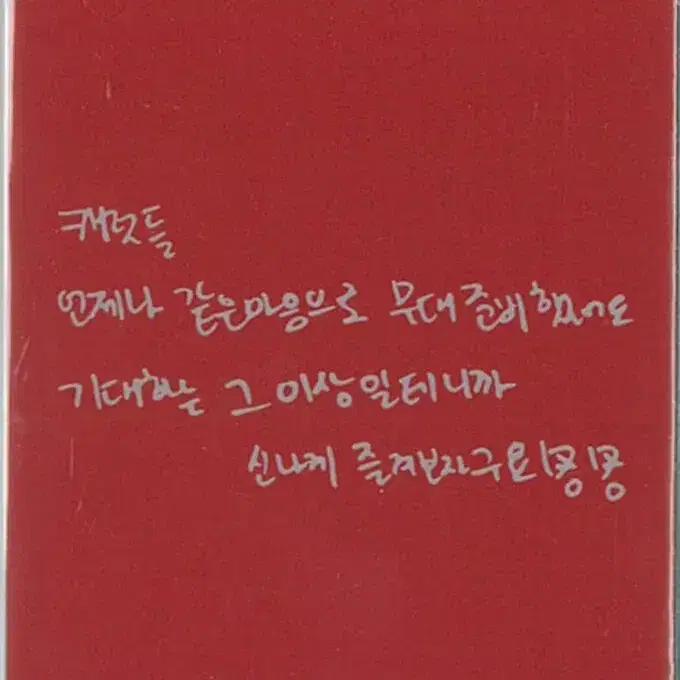 캐럿들
언제나 같은마음으로 무대준비했어요
기대하는 그 이상일테니까
신나게 즐겨보자구요!쿵!쿵